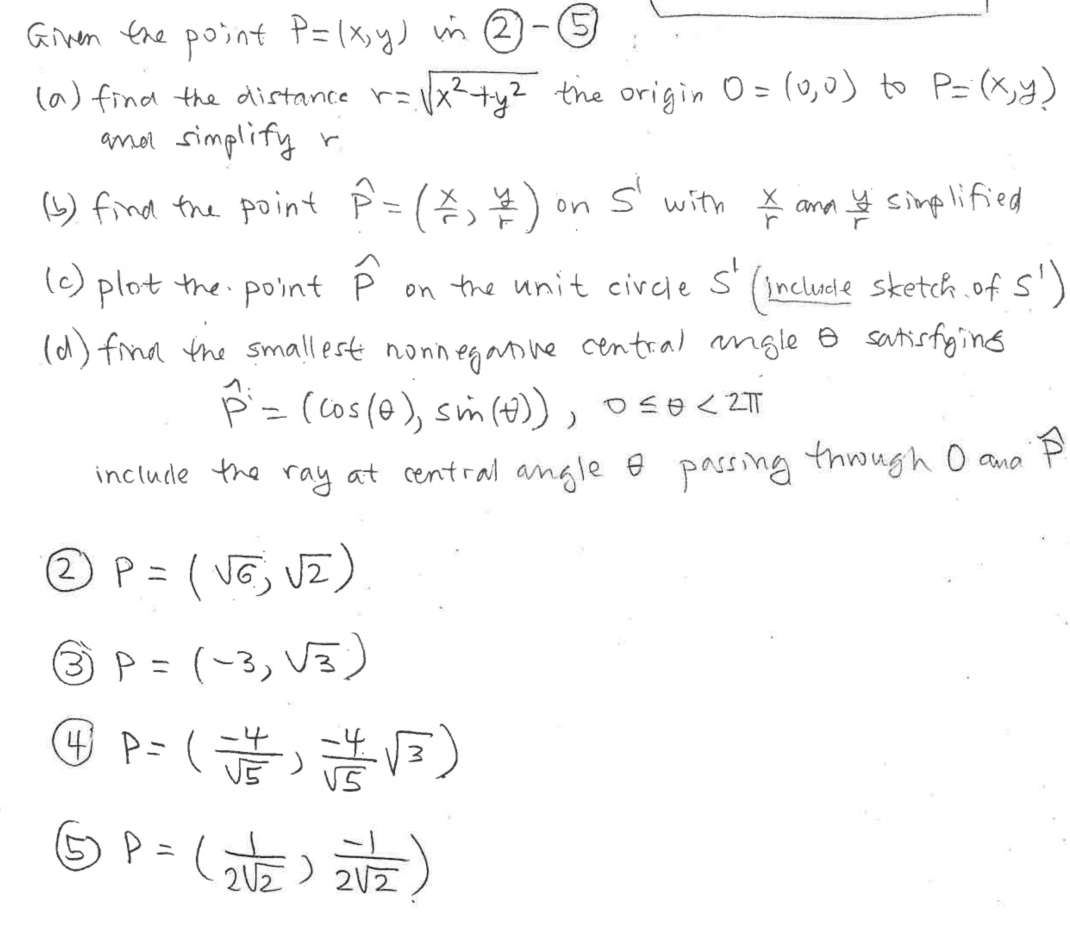 Given the point P=(x,y) in ②-⑤
(a) find the distance r=√(x²+y²) the origin O = (0,0) to P=(x,y)
and simplify r
(b) find the point P̂ = (x/r, y/r) on S¹ with x/r and y/r simplified
(c) plot the point P̂ on the unit circle S¹ (include sketch of S¹)
(d) find the smallest nonnegative central angle θ satisfying
P̂ = (cos(θ), sin(θ)), 0≤θ<2π
include the ray at central angle θ passing through O and P̂
② P = (√6, √2)
③ P = (-3, √3)
④ P = (-4/√5, -4/√5 √3)
⑤ P = (1/2√2, -1/2√2)